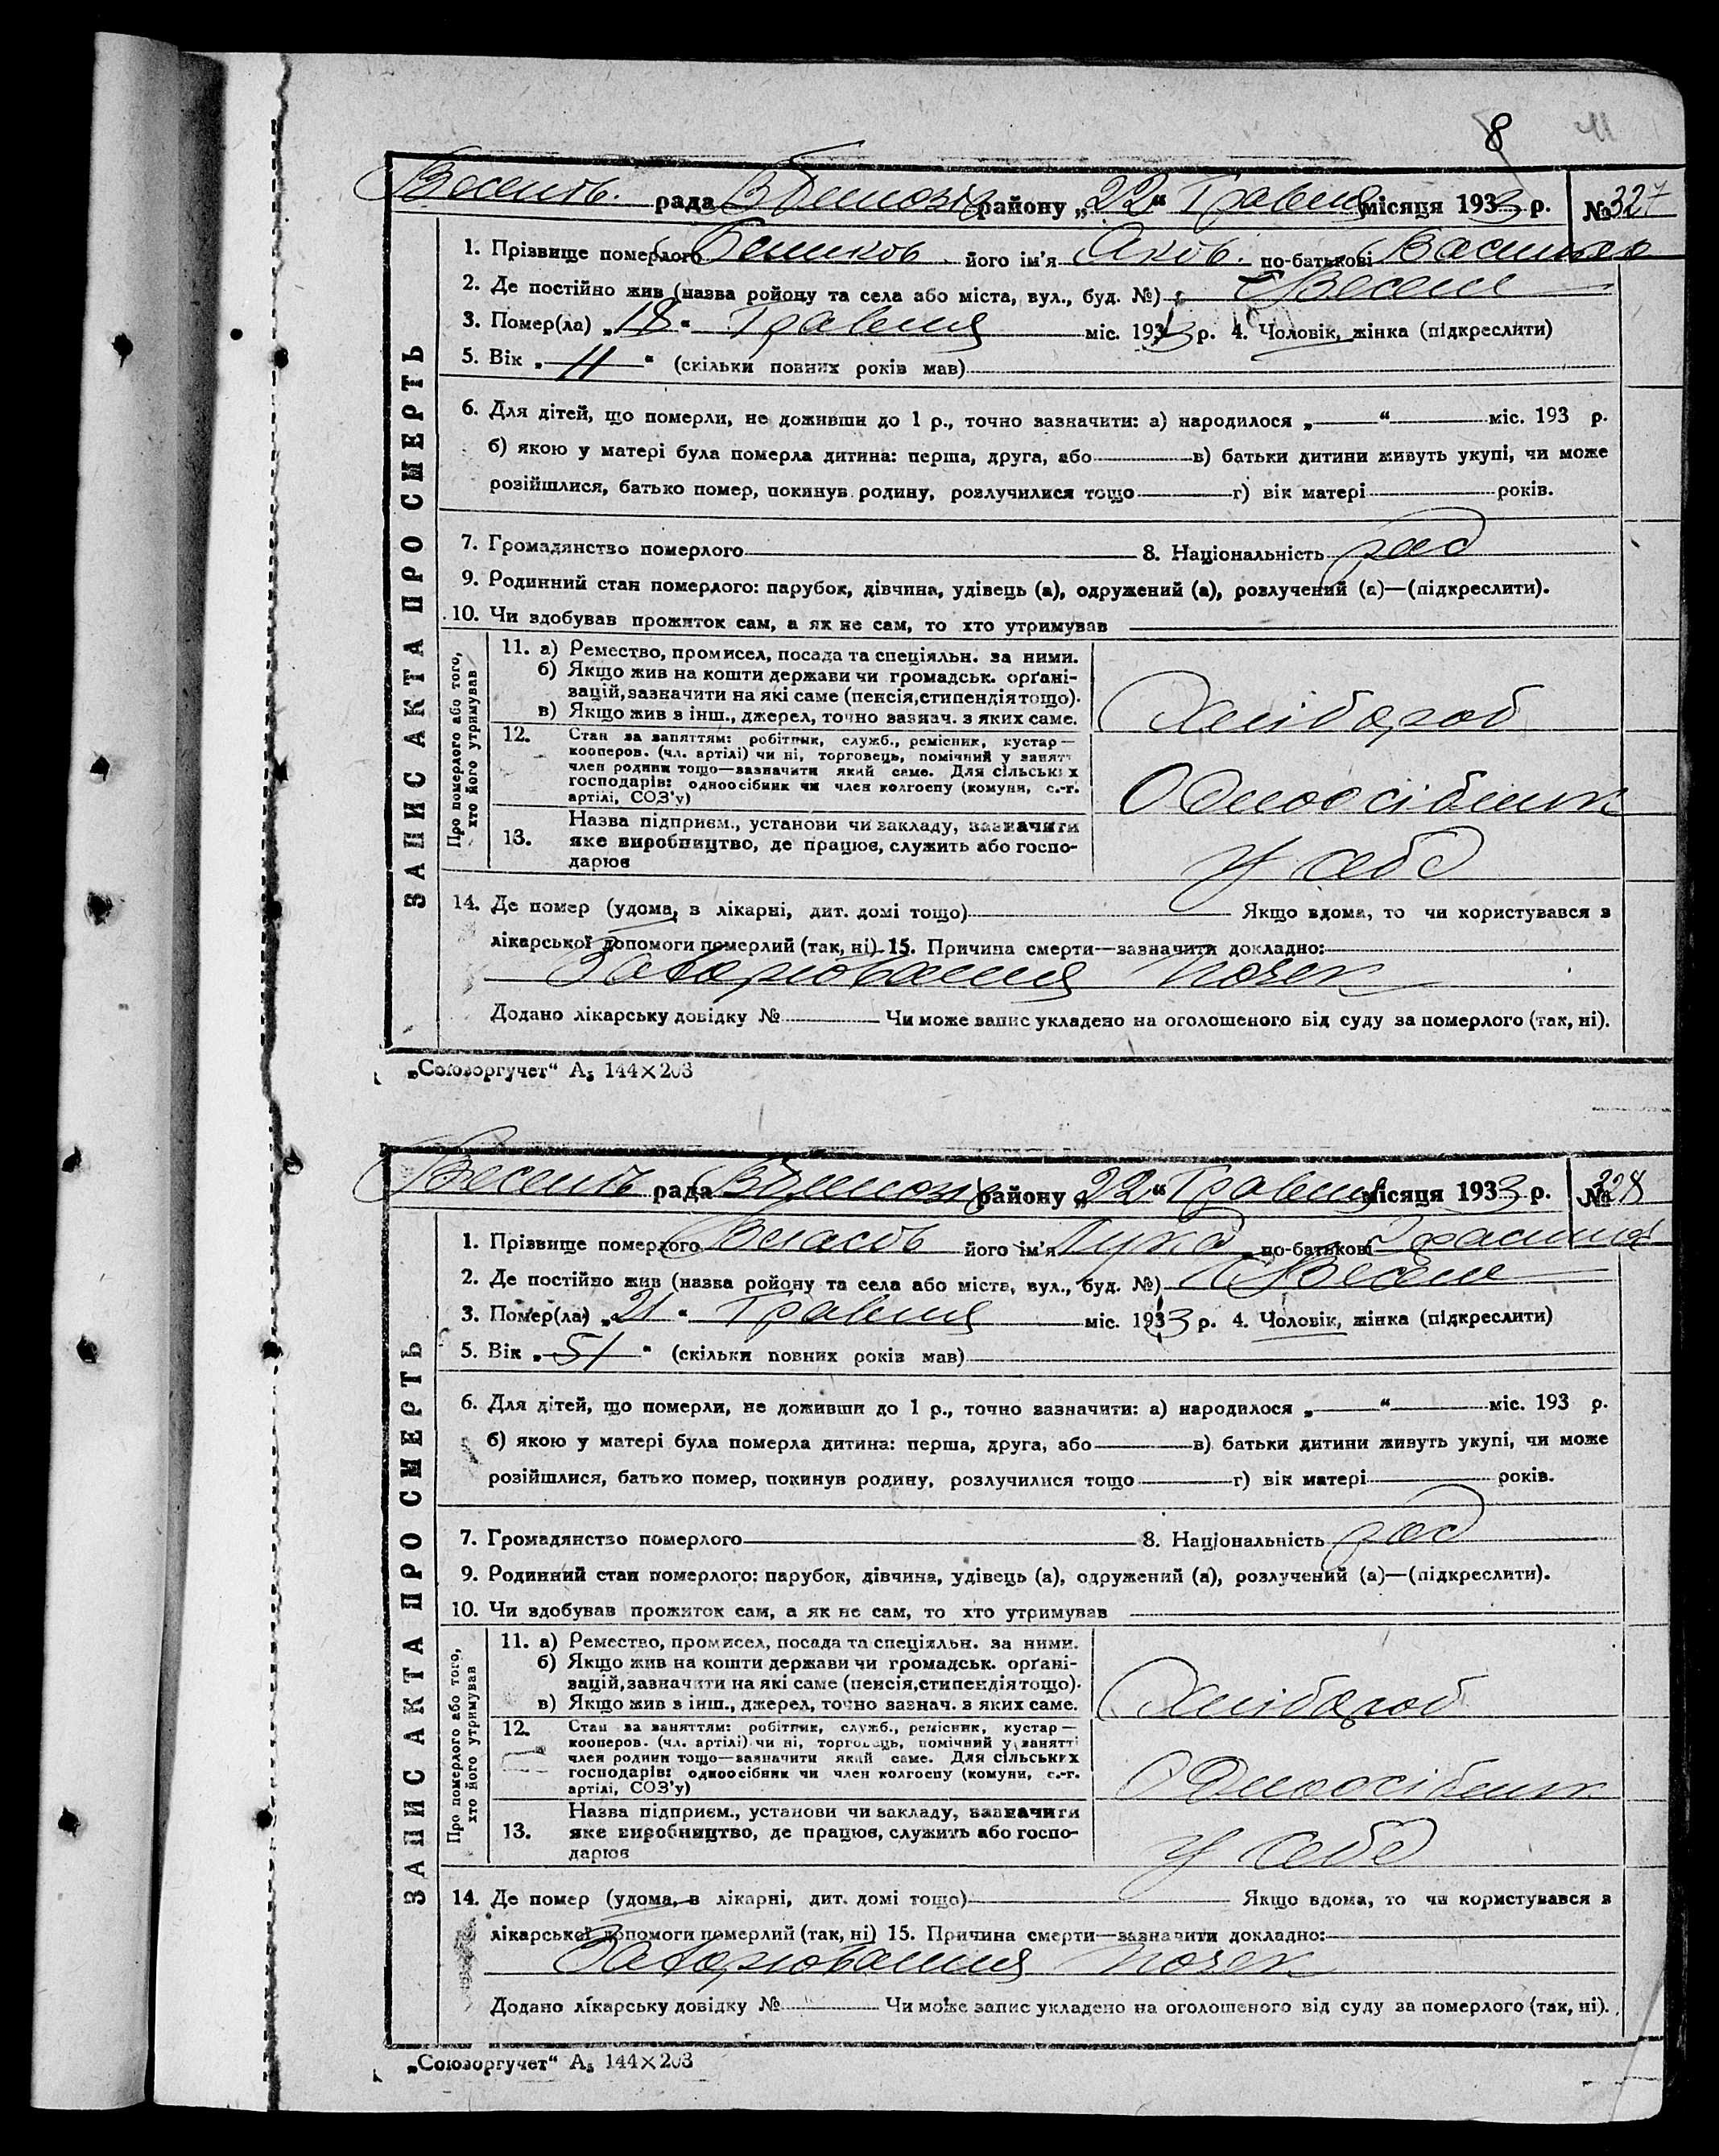 8 11
рада району „22“ Травня місяця 1933 р. № 327
1. Прізвище померлого його ім'я Яков. по-батькові
2. Де постійно жив (назва ройону та села або міста, вул., буд. №) с Веселе
3. Помер(ла) „18“ Травня міс. 1933 р. 4. Чоловік, жінка (підкреслити)
5. Вік „11“ (скільки повних років мав)
6. Для дітей, що померли, не доживши до 1 р., точно зазначити: а) народилося „ “ міс. 193 р.
б) якою у матері була померла дитина: перша, друга, або в) батьки дитини живуть укупі, чи може
розійшлися, батько помер, покинув родину, розлучилися тощо г) вік матері років.
7. Громадянство померлого 8. Національність
9. Родинний стан померлого: парубок, дівчина, удівець (а), одружений (а), розлучений (а)—(підкреслити).
10. Чи здобував прожиток сам, а як не сам, то хто утримував
ЗАПИС АКТА ПРО СМЕРТЬ
Про померлого або того,
хто його утримував
11. а) Ремество, промисел, посада та спеціяльн. за ними.
б) Якщо жив на кошти держави чи громадськ. орґані-
зацій, зазначити на які саме (пенсія, стипендія тощо).
в) Якщо жив з інш., джерел, точно зазнач. з яких саме.
Хлібороб
12. Стан за заняттям: робітник, служб., ремісник, кустар—
кооперов. (чл. артілі) чи ні, торговець, помічний у занятті
член родини тощо—зазначити який саме. Для сільських
господарів: одноосібник чи член колгоспу (комуни, с.-г.
артілі, СОЗ'у)
Одноосібник
13. Назва підприєм., установи чи закладу, зазначити
яке виробництво, де працює, служить або госпо-
дарює
У себе
14. Де помер (удома, в лікарні, дит. домі тощо) Якщо вдома, то чи користувався з
лікарської допомоги померлий (так, ні) 15. Причина смерти—зазначити докладно:
Захорювання почек
Додано лікарську довідку № Чи може запис укладено на оголошеного від суду за померлого (так, ні).
„Союзоргучет“ А₅ 144×203
рада району „22“ Травня місяця 1933 р. № 328
1. Прізвище померлого Власов його ім'я Лука по-батькові
2. Де постійно жив (назва ройону та села або міста, вул., буд. №) с Веселе
3. Помер(ла) „21“ Травня міс. 1933 р. 4. Чоловік, жінка (підкреслити)
5. Вік „51“ (скільки повних років мав)
6. Для дітей, що померли, не доживши до 1 р., точно зазначити: а) народилося „ “ міс. 193 р.
б) якою у матері була померла дитина: перша, друга, або в) батьки дитини живуть укупі, чи може
розійшлися, батько помер, покинув родину, розлучилися тощо г) вік матері років.
7. Громадянство померлого 8. Національність
9. Родинний стан померлого: парубок, дівчина, удівець (а), одружений (а), розлучений (а)—(підкреслити).
10. Чи здобував прожиток сам, а як не сам, то хто утримував
ЗАПИС АКТА ПРО СМЕРТЬ
Про померлого або того,
хто його утримував
11. а) Ремество, промисел, посада та спеціяльн. за ними.
б) Якщо жив на кошти держави чи громадськ. орґані-
зацій, зазначити на які саме (пенсія, стипендія тощо).
в) Якщо жив з інш., джерел, точно зазнач. з яких саме.
Хлібороб
12. Стан за заняттям: робітник, служб., ремісник, кустар—
кооперов. (чл. артілі) чи ні, торговець, помічний у занятті
член родини тощо—зазначити який саме. Для сільських
господарів: одноосібник чи член колгоспу (комуни, с.-г.
артілі, СОЗ'у)
Одноосібник
13. Назва підприєм., установи чи закладу, зазначити
яке виробництво, де працює, служить або госпо-
дарює
У себе
14. Де помер (удома, в лікарні, дит. домі тощо) Якщо вдома, то чи користувався з
лікарської допомоги померлий (так, ні) 15. Причина смерти—зазначити докладно:
Захорювання почек
Додано лікарську довідку № Чи може запис укладено на оголошеного від суду за померлого (так, ні).
„Союзоргучет“ А₅ 144×203